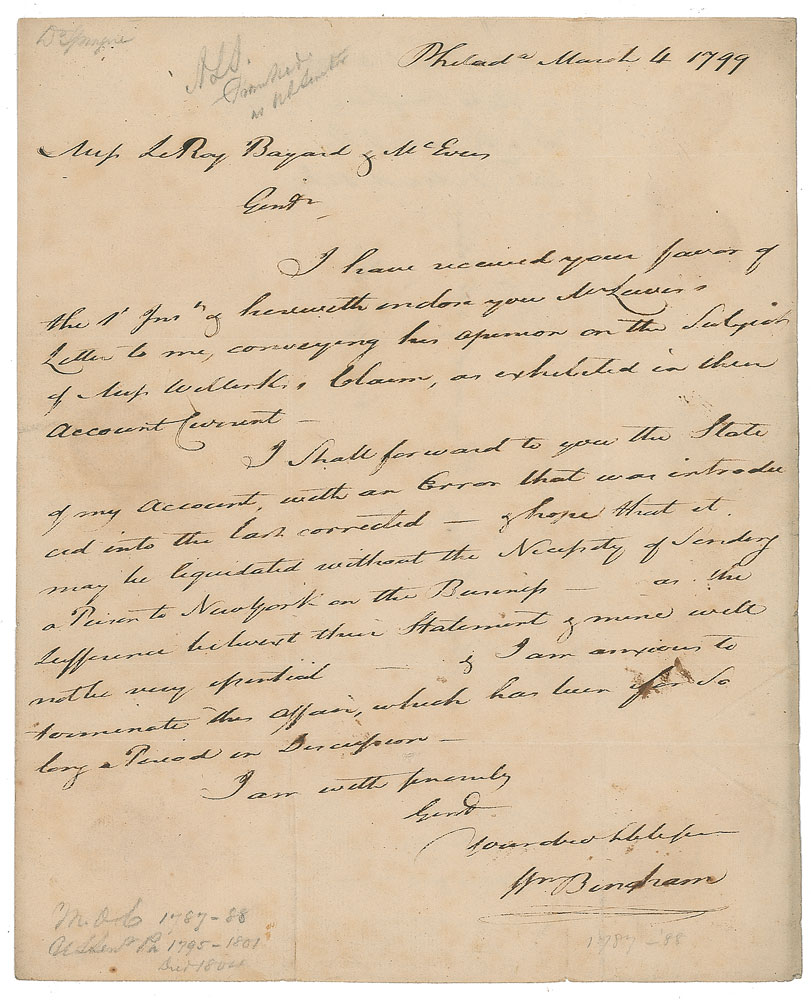 ALS.
Franked
as US Senator
Philada March 4 1799
Messs LeRoy Bayard & McEvers
Gentn
I have received your favor of
the 1st Inst & herewith enclose you Mr Lewis's
Letter to me, conveying his opinion on the Subject
of Messs Willinks Claim, as exhibited in their
Account Current —
I Shall forward to you the State
of my Account, with an Error that was introdu
ced into the last corrected — & hope that it
may be liquidated without the Necessity of Sending
a Person to New York on the Business — as the
Difference betwixt their Statement & mine will
not be very essential — & I am anxious to
terminate this affair, which has been for So
long a Period in Discussion —
I am with sincerity
Gentn
Your obed hble ser
Wm Bingham
M.O.C 1787-88
US Senr Pa 1795-1801
Died 1804
1787-88